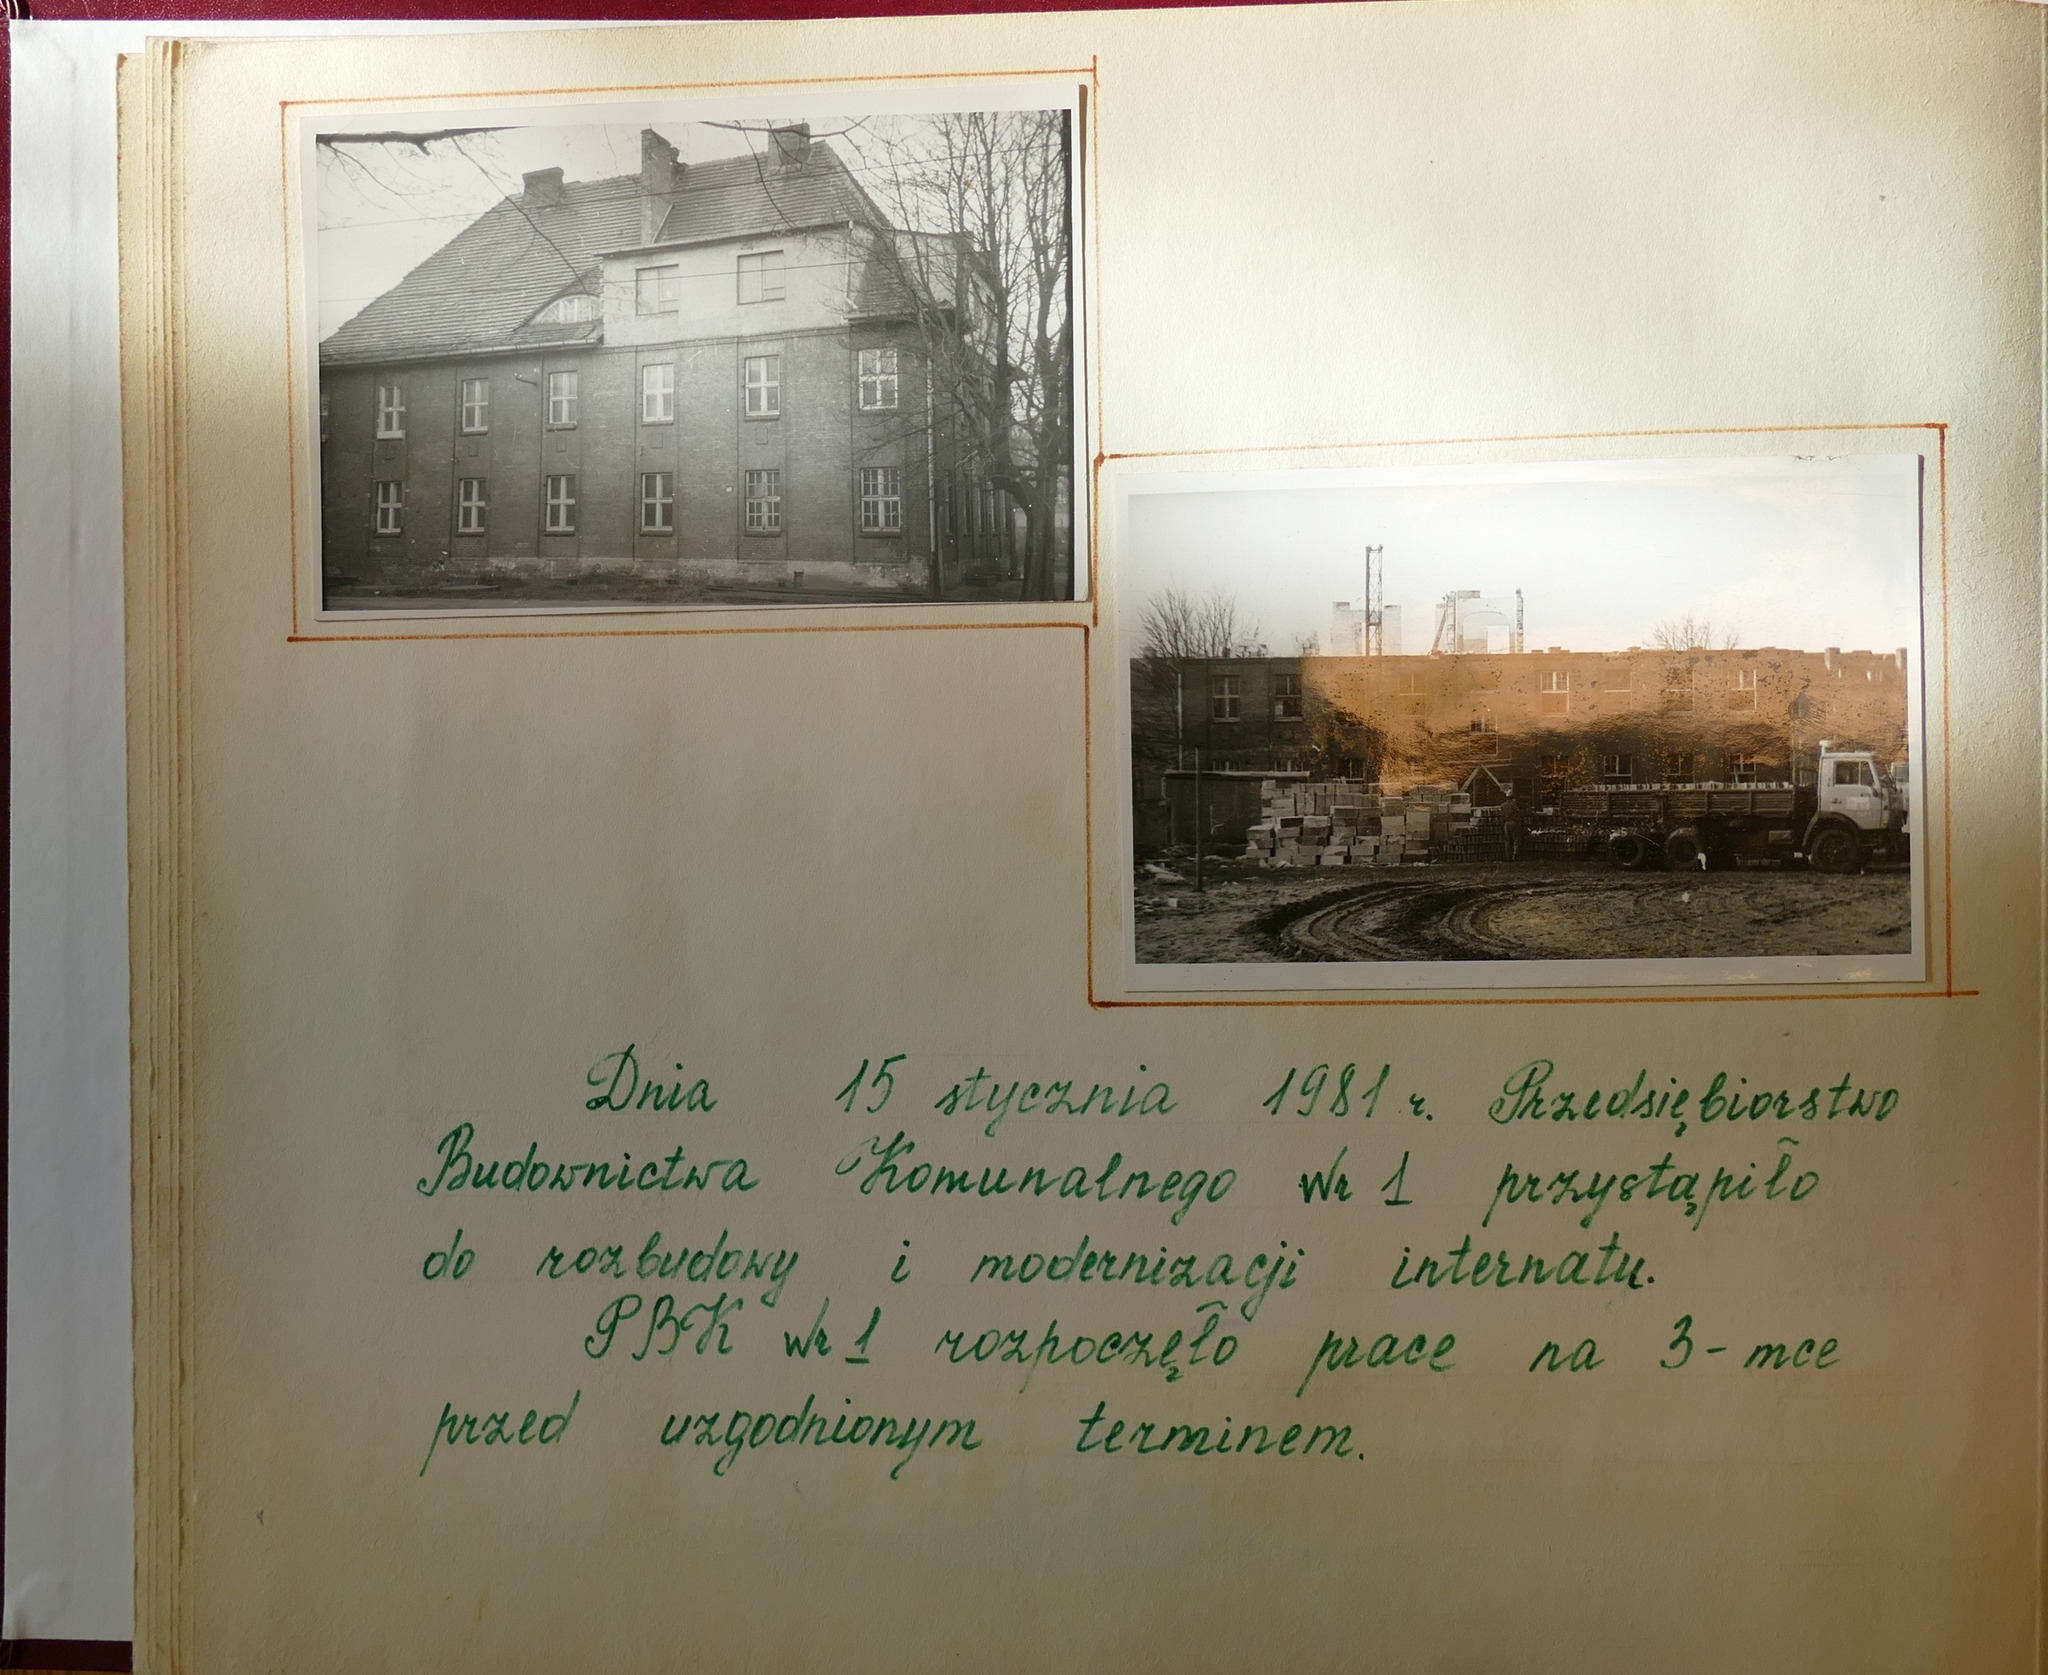 Dnia 15 stycznia 1981 r. Przedsiębiorstwo
Budownictwa Komunalnego Nr 1 przystąpiło
do rozbudowy i modernizacji internatu.
PBK Nr 1 rozpoczęło prace na 3-mce
przed uzgodnionym terminem.